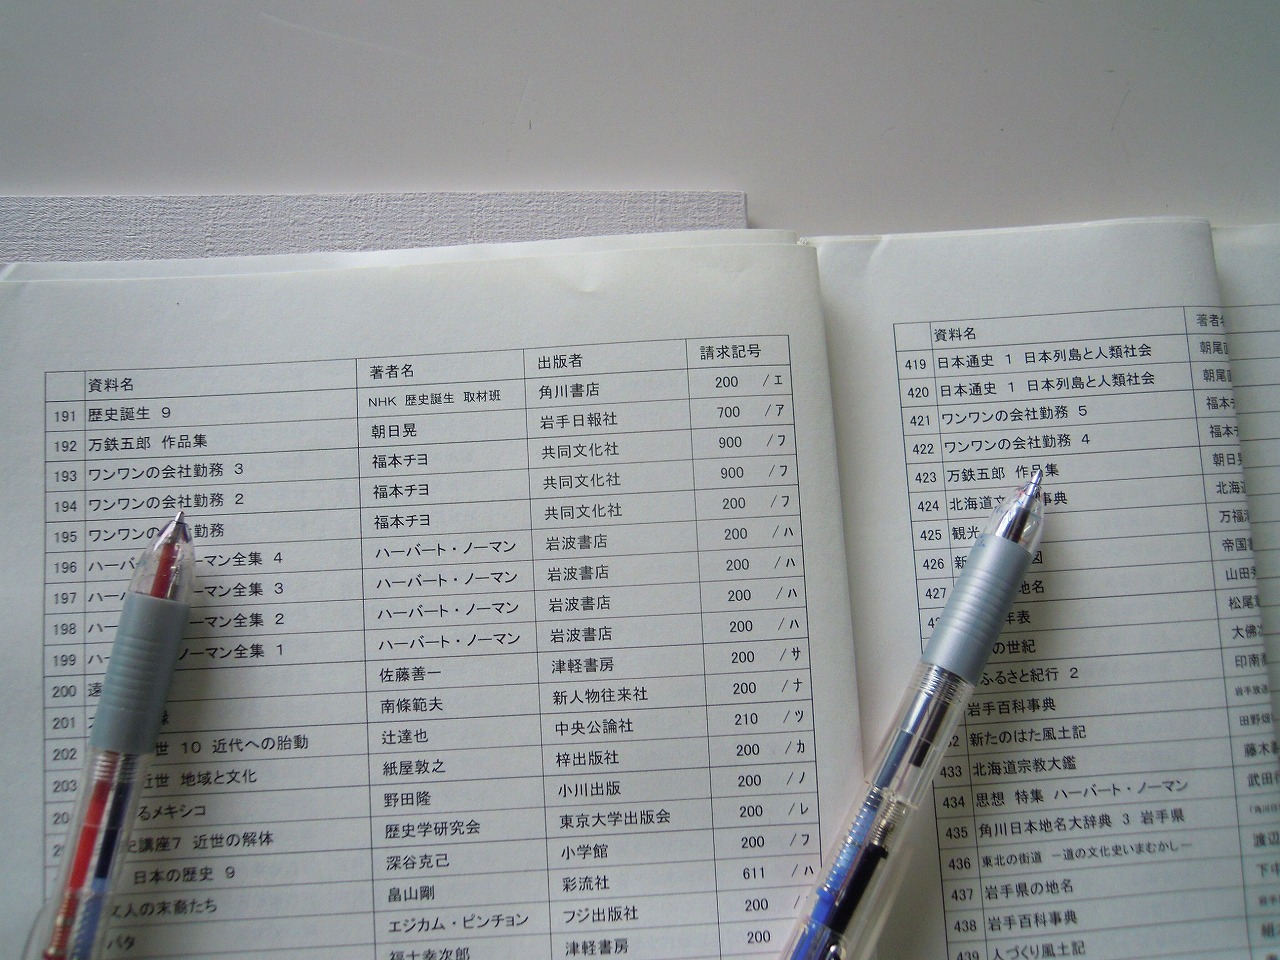 資料名 著者名 出版者 請求記号
191 歴史誕生 9 NHK 歴史誕生 取材班 角川書店 200 /エ
192 万鉄五郎 作品集 朝日晃 岩手日報社 700 /ア
193 ワンワンの会社勤務 3 福本チヨ 共同文化社 900 /フ
194 ワンワンの会社勤務 2 福本チヨ 共同文化社 900 /フ
195 ワンワンの 社勤務 福本チヨ 共同文化社 200 /フ
196 ハーバ ーマン全集 4 ハーバート・ノーマン 岩波書店 200 /ハ
197 ハー ーマン全集 3 ハーバート・ノーマン 岩波書店 200 /ハ
198 ハー ノーマン全集 2 ハーバート・ノーマン 岩波書店 200 /ハ
199 ハー ノーマン全集 1 ハーバート・ノーマン 岩波書店 200 /ハ
200 遠 佐藤善一 津軽書房 200 /サ
201 南條範夫 新人物往来社 200 /ナ
202 世 10 近代への胎動 辻達也 中央公論社 210 /ツ
203 近世 地域と文化 紙屋敦之 梓出版社 200 /カ
るメキシコ 野田隆 小川出版 200 /ノ
講座7 近世の解体 歴史学研究会 東京大学出版会 200 /レ
日本の歴史 9 深谷克己 小学館 200 /フ
人の末裔たち 畠山剛 彩流社 611 /ハ
バタ エジカム・ピンチョン フジ出版社 200 /
福士幸次郎 津軽書房 200
資料名 著者名
419 日本通史 1 日本列島と人類社会 朝尾直
420 日本通史 1 日本列島と人類社会 朝尾直
421 ワンワンの会社勤務 5 福本チ
422 ワンワンの会社勤務 4 福本チ
423 万鉄五郎 作品集 朝日晃
424 北海道文 事典 北海道
425 観光 万福
426 新 図 帝国書
427 地名 山田秀
年表 松尾
の世紀 大佛次
ふるさと紀行 2 印南
岩手百科事典 岩手放送
新たのはた風土記 田野畑
433 北海道宗教大鑑 藤木
434 思想 特集 ハーバート・ノーマン 武田
435 角川日本地名大辞典 3 岩手県
436 東北の街道 －道の文化史いまむかし－ 渡辺
437 岩手県の地名 下中
438 岩手百科事典 岩手
439 人づくり風土記 組